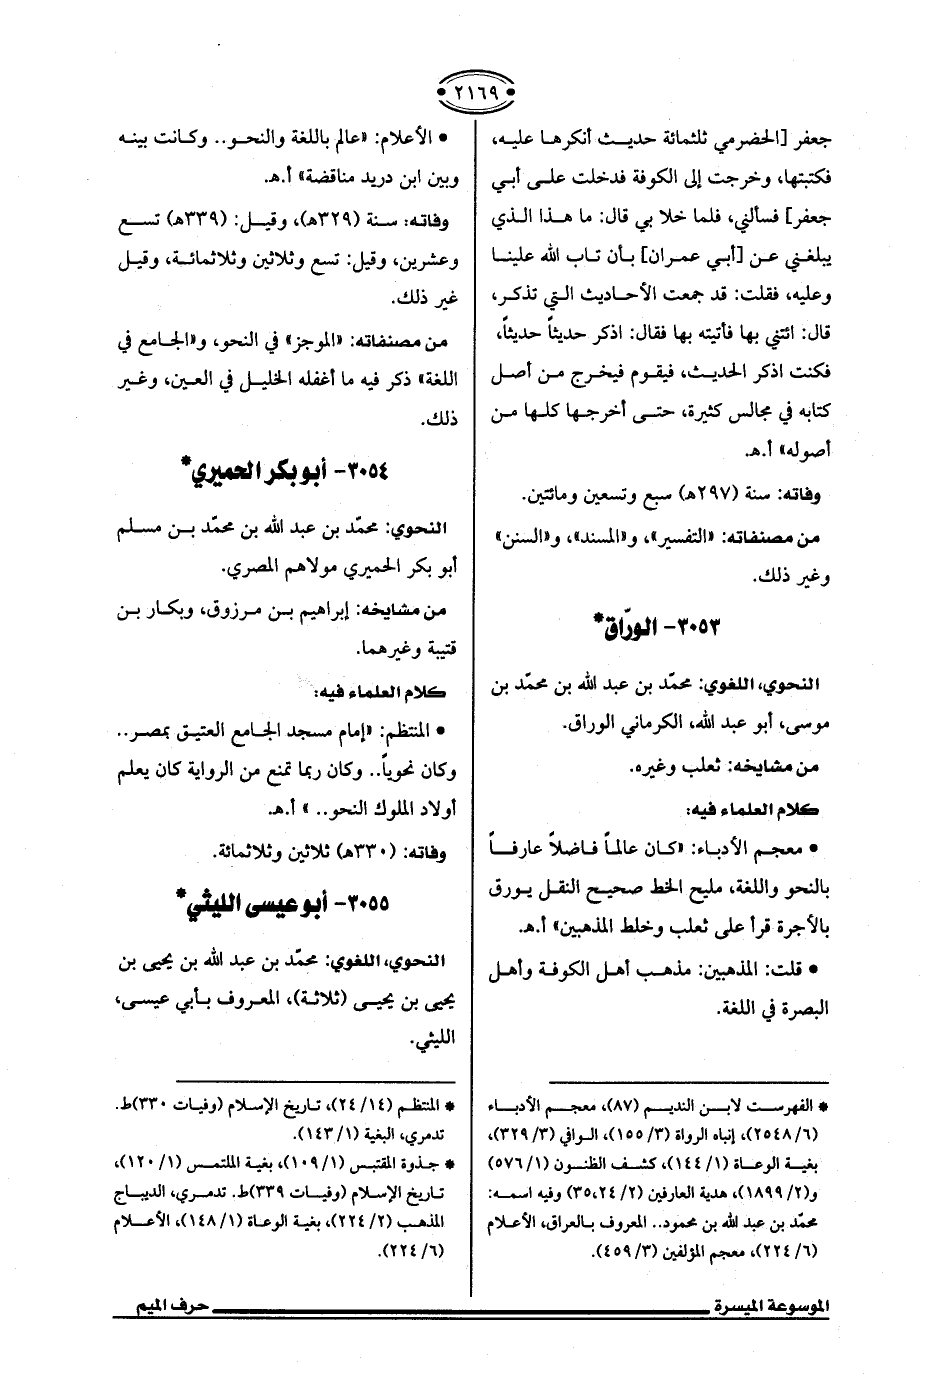 ٢١٦٩
جعفر [الحضرمي ثلثمائة حديث أنكرها عليه،
فكتبتها، وخرجت إلى الكوفة فدخلت على أبي
جعفر] فسألني، فلما خلا بي قال: ما هذا الذي
يبلغني عن [أبي عمران] بأن تاب الله علينا
وعليه، فقلت: قد جمعت الأحاديث التي تذكر،
قال: ائتني بها فأتيته بها فقال: اذكر حديثاً حديثاً،
فكنت اذكر الحديث، فيقوم فيخرج من أصل
كتابه في مجالس كثيرة، حتى أخرجها كلها من
أصوله» أ.هـ.
وفاته: سنة (٢٩٧هـ) سبع وتسعين ومائتين.
من مصنفاته: «التفسير»، و«المسند»، و«السنن»
وغير ذلك.
٣٠٥٣- الورّاق*
النحوي، اللغوي: محمّد بن عبد الله بن محمّد بن
موسى، أبو عبد الله، الكرماني الوراق.
من مشايخه: ثعلب وغيره.
كلام العلماء فيه:
• معجم الأدباء: «كان عالماً فاضلاً عارفاً
بالنحو واللغة، مليح الخط صحيح النقل يورق
بالأجرة قرأ على ثعلب وخلط المذهبين» أ.هـ.
• قلت: المذهبين: مذهب أهل الكوفة وأهل
البصرة في اللغة.
* الفهرست لابن النديم (٨٧)، معجم الأدباء
(٦/ ٢٥٤٨)، إنباه الرواة (٣/ ١٥٥)، الوافي (٣/ ٣٢٩)،
بغية الوعاة (١/ ١٤٤)، كشف الظنون (١/ ٥٧٦)
و(٢/ ١٨٩٩)، هدية العارفين (٢/ ٣٥،٢٤) وفيه اسمه:
محمّد بن عبد الله بن محمود.. المعروف بالعراق، الأعلام
(٦/ ٢٢٤)، معجم المؤلفين (٣/ ٤٥٩).
• الأعلام: «عالم باللغة والنحو.. وكانت بينه
وبين ابن دريد مناقضة» أ.هـ.
وفاته: سنة (٣٢٩هـ)، وقيل: (٣٣٩هـ) تسع
وعشرين، وقيل: تسع وثلاثين وثلاثمائة، وقيل
غير ذلك.
من مصنفاته: «الموجز» في النحو، و«الجامع في
اللغة» ذكر فيه ما أغفله الخليل في العين، وغير
ذلك.
٣٠٥٤- أبو بكر الحميري*
النحوي: محمّد بن عبد الله بن محمّد بن مسلم
أبو بكر الحميري مولاهم المصري.
من مشايخه: إبراهيم بن مرزوق، وبكار بن
قتيبة وغيرهما.
كلام العلماء فيه:
• المنتظم: «إمام مسجد الجامع العتيق بمصر..
وكان نحوياً.. وكان ربما تمنع من الرواية كان يعلم
أولاد الملوك النحو.. » أ.هـ.
وفاته: (٣٣٠هـ) ثلاثين وثلاثمائة.
٣٠٥٥- أبو عيسى الليثي*
النحوي، اللغوي: محمّد بن عبد الله بن يحيى بن
يحيى بن يحيى (ثلاثة)، المعروف بأبي عيسى،
الليثي.
* المنتظم (١٤/ ٢٤)، تاريخ الإسلام (وفيات ٣٣٠)ط.
تدمري، البغية (١/ ١٤٣).
* جذوة المقتبس (١/ ١٠٩)، بغية الملتمس (١/ ١٢٠)،
تاريخ الإسلام (وفيات ٣٣٩)ط. تدمري، الديباج
المذهب (٢/ ٢٢٤)، بغية الوعاة (١/ ١٤٨)، الأعلام
(٦/ ٢٢٤).
الموسوعة الميسرة
حرف الميم